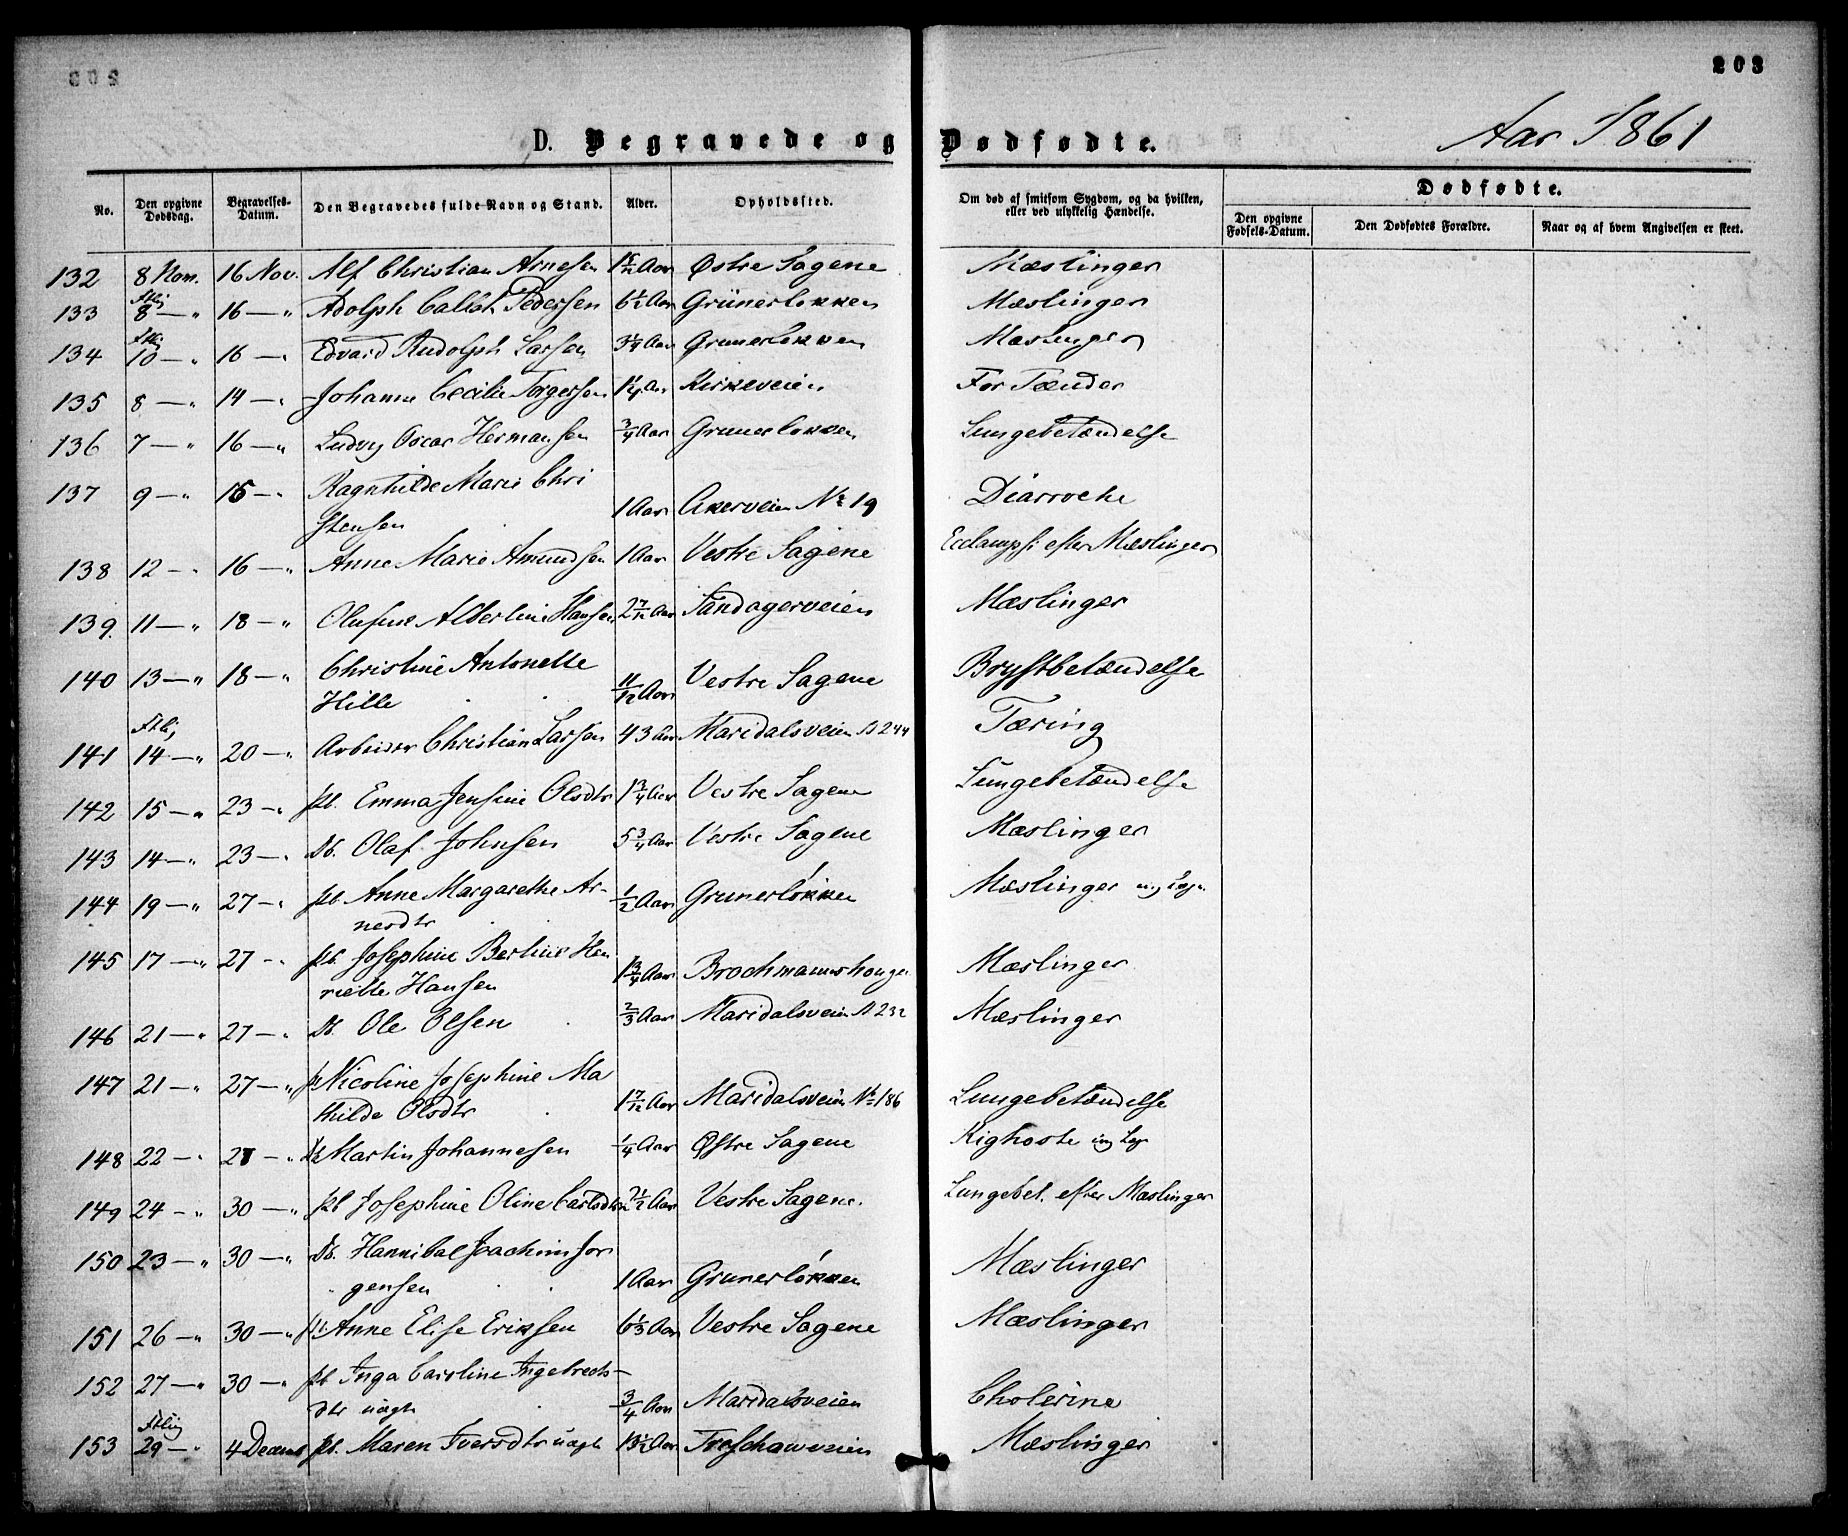 203
Aar 1861
D. Begravede og Dødfødte.
No. Den opgivne Dødsdag. Begravelses-Datum. Den Begravedes fulde Navn og Stand. Alder. Opholdssted. Om død af smitsom Sygdom, og da hvilken, eller ved ulykkelig Hændelse. Dødfødte.
Den opgivne Fødsels-Datum. Den Dødfødtes Forældre. Naar og af hvem Angivelsen er skeet.
132 8 Nov. 16 Nov. Alf Christian Arnesen Aar Østre Sagene Mæslinger
133 8 — " 16 — " Adolph Pedersen 6 1/2 Aar Grünerløkken Mæslinger
134 10 — " 16 — " Edvard Rudolph Larsen 3 1/4 Aar Grunerløkken Mæslinger
135 8 — " 14 — " Johanne Cecilie Torgersen 1 1/4 Aar Kirkeveien For Tænder
136 7 — " 16 — " Ludvig Oscar Hermansen 3/4 Aar Grunerløkken Lungebetændelse
137 9 — " 15 — " Ragnhilde Marie Chri
stensen 1 Aar Akerveien No 19 Diarroche
138 12 — " 16 — " Anne Marie Amundsen 1 Aar Vestre Sagene Ecclampsi efter Mæslinger
139 11 — " 18 — " Olufine Albertine Hansen 2 7/12 Aar Sandagerveien Mæslinger
140 13 — " 18 — " Christine Antonette
Hille 11/12 Aar Vestre Sagene Brystbetændelse
141 14 — " 20 — " Arbeider Christian Larsen 43 Aar Maridalsveien No 244 Tæring
142 15 — " 23 — " pb. Emma Jensine Olsdtr 1 3/4 Aar Vestre Sagene Lungebetændelse
143 14 — " 23 — " Db. Olaf Johnsen 5 3/4 Aar Vestre Sagene Mæslinger
144 19 — " 27 — " pb. Anne Margarethe Ar-
nesdtr 1/2 Aar Grunerløkken Mæslinger
145 17 — " 27 — " pb. Josephine Bertine Hen
riette Hansen 1 3/4 Aar Brochmannshougen Mæslinger
146 21 — " 27 — " Db. Ole Olsen 2/3 Aar Maridalsveien No 232 Mæslinger
147 21 — " 27 — " p Nicoline Josephine Ma
thilde Olsdtr 1 7/12 Aar Maridalsveien No 186 Lungebetændelse
148 22 — " 27 — " Db Martin Johannesen 1/4 Aar Østre Sagene Kighoste
149 24 — " 30 — " pb Josephine Oline Carlsdtr 2 1/2 Aar Vestre Sagene. Lungebet. efter Mæslinger
150 23 — " 30 — " Db. Hannibal Joachim Jør
gensen 1 Aar Grunerløkken Mæslinger
151 26 — " 30 — " p. Anne Elise Eriksen 6 1/3 Aar Vestre Sagene Mæslinger
152 27 — " 30 — " pb Inga Caroline Ingebrets-
dtr uægte 3/4 Aar Maridalsveien Cholerine
153 29 — " 4 Decemb pb. Maren Iversdtr uægte 1 1/2 Aar Treschowveien Mæslinger